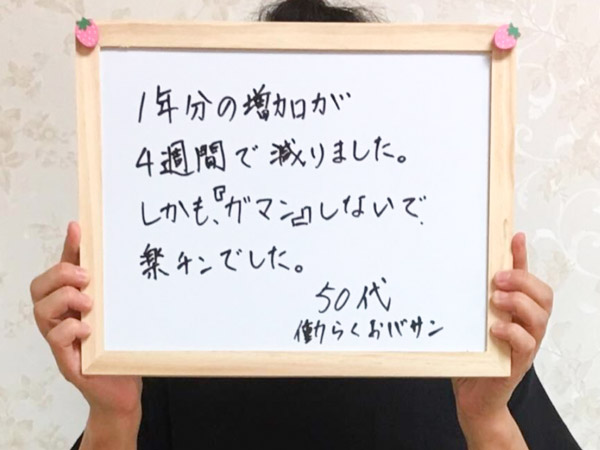 1年分の増加が
4週間で減りました。
しかも、『ガマン』しないで
楽チンでした。
50代
働らくおバサン